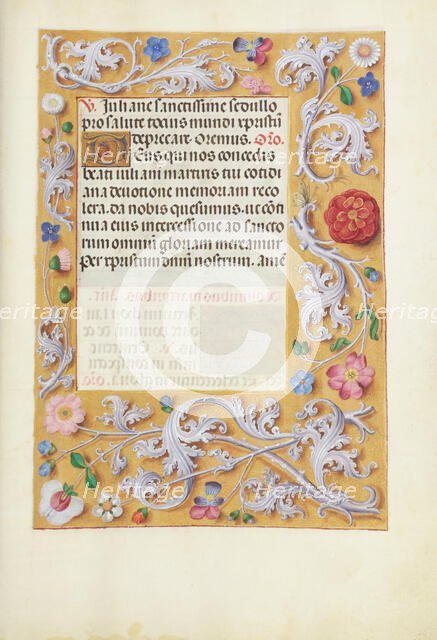 V. Iuliane sanctissime sedullo
pro salute tocius mundi xpristū
deprecare. Oremus. Oro.
Deus qui nos concedis
beati iuliani martiris tui cotidi
ana deuotione memoriam reco
lere. da nobis quesumus. ut conti
nua eius intercessione ad sancto
rum omniū gloriam mereamur
per xpristum dnm nostrum. amē
Heritage Images
Heritage Images
Heritage Images
Heritage Images
Heritage Images